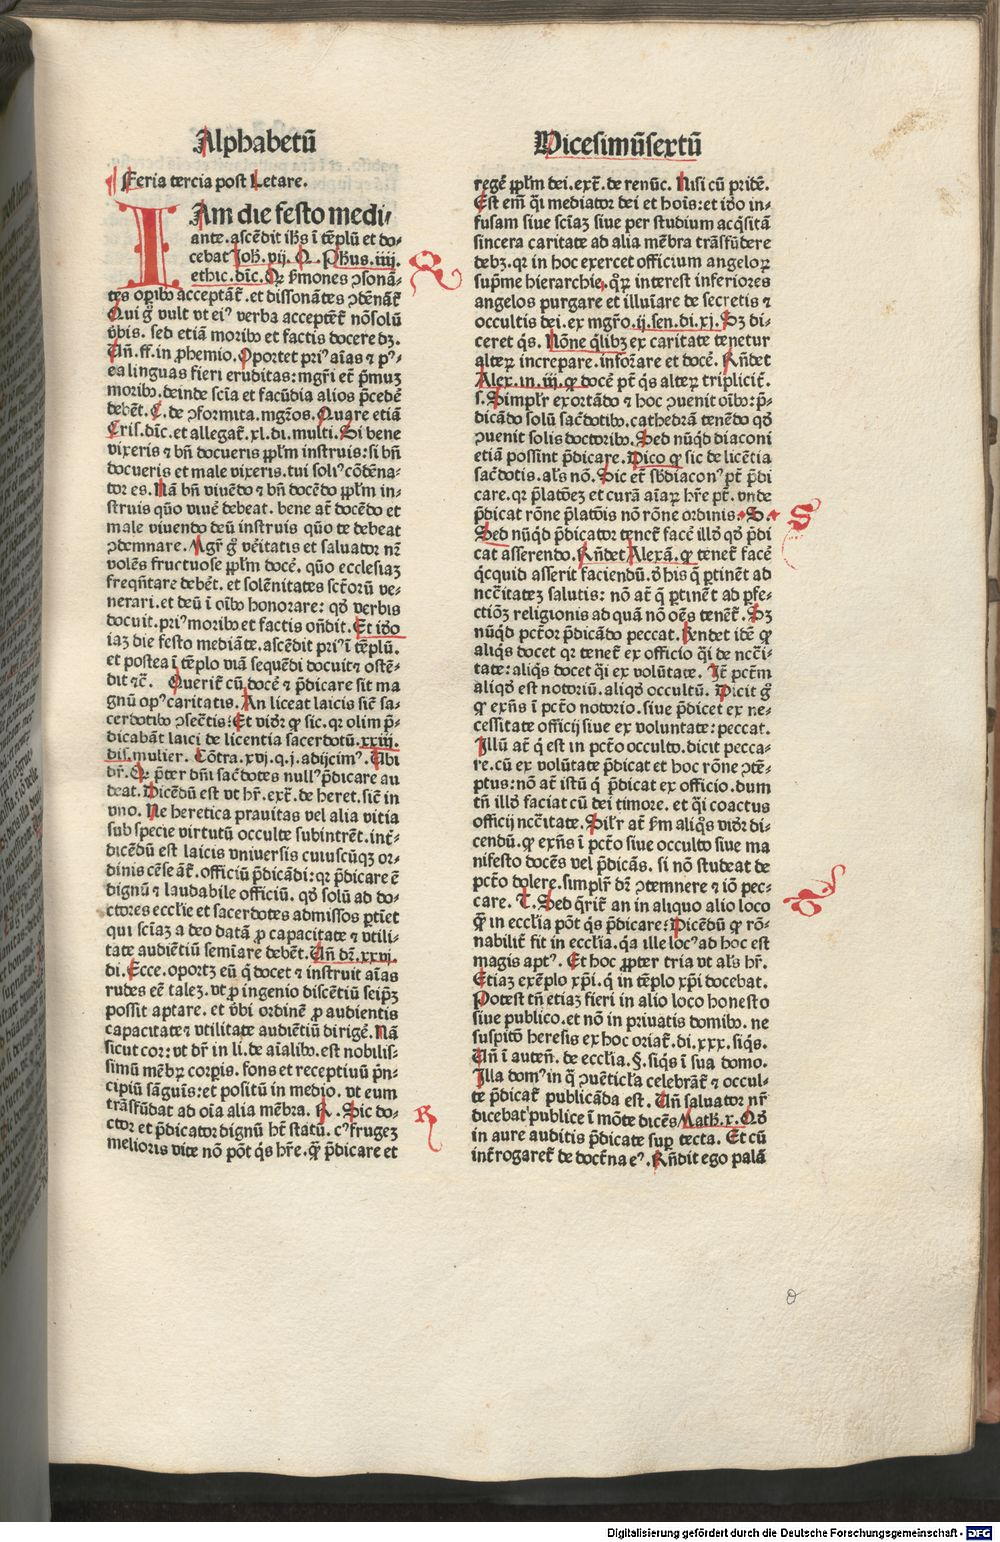 Alphabetū
Feria tercia post Letare.
IAm die festo medi/
ante. ascēdit ihꝰs ī tēplū et do⸗
cebat Joh̄. vij. Q. Ph̄us. iiij.
ethic. dīc. Qꝛ ẜmones ꝯsonā⸗
tes oꝑibꝰ acceptāt᷑. et dissonātes ꝯdēnāt᷑
Qui g̊ vult vt eiꝰ verba acceptēt᷑ nō solū
v̄bis. sed etiā moribꝰ et factis docere dꝫ.
Uñ. ff. in ꝓhemio. Oportet priꝰ aīas ⁊ pꝰ⸗
ea linguas fieri eruditas: mgr̄i et̄ p̄muꝫ
moribꝰ. deinde scīa et facūdia alios p̄cedē
debēt. C. de ꝓfor mita. mgr̄os. Quare etiā
Cris. dīc. et allegat᷑. xl. di. multi. Si bene
vixeris ⁊ bñ docueris ppl̄m instruis: si bñ
docueris et male vixeris. tui soliꝰ cōdēna⸗
tor es. Nā bñ viuēdo ⁊ bñ docēdo ppl̄m in⸗
struis quō viuē debeat. bene at̄ docēdo et
male viuendo deū instruis quō te debeat
ꝯdemnare. Mgr̄ g̊ vēitatis et saluator nr̄
volēs fructuose ppl̄m docē. quō ecclesiaꝫ
freqn̄tare debēt. et solēnitates sct̄orū ve⸗
nerari. et deū ī oībꝰ honorare: qd̓ verbis
docuit. priꝰ moribꝰ et factis oñdit. Et id̓o
iaꝫ die festo mediāte. ascēdit priꝰ ī tēplū.
et postea ī tēplo viā sequēdi docuit ⁊ ostē⸗
dit ⁊c̄. Querit᷑ cū docē ⁊ p̄dicare sit ma
gnū opꝰ caritatis. An liceat laicis siē sa⸗
cerdotibꝰ ꝯseētis: Et vid̓r ꝙ sic. qꝛ olim p̄⸗
dicabāt laici de licentia sacerdotū. xxiij.
dis. mulier. Cōtra. xvj. q. j. adijcimꝰ. Ubi
dr̄. Qꝛ p̄ter dn̄i sac̄dotes nullꝰ p̄dicare au
deat. Dicēdū est vt hr̄. ext̄. de heret. siē in
vno. Ne heretica prauitas vel alia vitia
sub specie virtutū occulte subintrēt. int̄⸗
dicēdū est laicis vniuersis cuiuscūqꝫ or⸗
dinis cēseāt᷑. officiū p̄dicādi: qꝛ p̄dicare ē
dignū ⁊ laudabile officiū. qd̓ solū ad do⸗
ctores eccl̄ie et sacerdotes admissos ptīet
qui sciāꝫ a deo datā ꝓ capacitate ⁊ vtili⸗
tate audiētiū semīare debēt. Uñ dr̄. xxvj.
di. Ecce. oportꝫ eū q̇ docet ⁊ instruit aīas
rudes eē taleꝫ. vt ꝓ ingenio discētiū seip̄ꝫ
possit aptare. et v̄bi ordinē ꝓ audientis
capacitate ⁊ vtilitate audiētiū dirigē. Nā
sicut cor: vt dr̄ in li. de aīalibꝰ. est nobilis⸗
simū mēbꝝ corpis. fons et receptiuū p̄n⸗
cipiū sāguīs: et positū in medio. vt eum
trāsfūdat ad oīa alia mēbra. R. Sic do⸗
ctor et p̄dicator dignū hꝫ statū. cꝰ frugeꝫ
melioris vite nō pōt q̇s hr̄e. qꝫ p̄dicare et
R
Vicesimūsextū
regē ppl̄m dei. ext̄. de renūc. Nisi cū pridē.
Est em̄ q̇i mediator dei et hoīs: et id̓o in⸗
fusam siue sciāꝫ siue per studium acq̇sitā
sincera caritate ad alia mēbra trāsfūdere
debꝫ. qꝛ in hoc exercet officium angeloꝝ
sup̄me hierarchie. qꝝ interest inferiores
angelos purgare et illuīare de secretis ⁊
occultis dei. ex mgr̄o. ij. sen. di. xj. Sꝫ di⸗
ceret q̇s. Nōne q̇libꝫ ex caritate tenetur
alteꝝ increpare. informare et docē. Rn̄det
Alex. in. iij. ꝙ docē pt̄ q̇s alteꝝ triplicit᷑.
s. Simpl̓r exortādo ⁊ hoc ꝯuenit oībꝰ: p̄⸗
dicādo solū sac̄dotibꝰ. cathedrā tenēdo qd̓
ꝯuenit solis doctoribꝰ. Sed nūqd̓ diaconi
etiā possint p̄dicare. Dico ꝙ sic de licētia
sac̄dotis. al̓s nō. Sic et̄ sb̓diaconꝰ pt̄ p̄di
care. qꝛ p̄latōeꝫ et curā aīaꝝ hr̄e pt̄. vnde
p̄dicat rōne p̄latōis nō rōne ordinis. S.
Sed nūqd̓ p̄dicator tenet᷑ facē illd̓ qd̓ p̄di
cat asserendo. Rn̄det Alexā. ꝙ tenet᷑ facē
q̇cquid asserit faciendū. d̓ his q̄ ptinēt ad
nccītateꝫ salutis: nō at̄ q̄ ptinēt ad pfe⸗
ctiōꝫ religionis ad quā nō oēs tenēt᷑. Sꝫ
nūqd̓ pctōr p̄dicādo peccat. Rn̄det idē ꝙ
aliqs̓ docet qꝛ tenet᷑ ex officio q̇i de nccī⸗
tate: aliqs̓ docet q̇i ex volūtate. It̄ pctm̄
aliqd̓ est notoriū. aliqd̓ occultū. Dicit g̊
ꝙ exn̄s ī pctō notorio. siue p̄dicet ex ne⸗
cessitate officij siue ex voluntate: peccat.
Illū at̄ q̇ est in pctō occulto. dicit pecca⸗
re. cū ex volūtate p̄dicat et hoc rōne ꝯtē⸗
ptus: nō at̄ istū q̇ p̄dicat ex officio. dum
tn̄ illd̓ faciat cū dei timore. et q̇i coactus
officij nccītate. Sil̓r at̄ ẜm aliq̇s vid̓r di⸗
cendū. ꝙ exn̄s ī pctō siue occulto siue ma
nifesto docēs vel p̄dicās. si nō studeat de
pctō dolere. simpl̓r dr̄ ꝯtemnere ⁊ iō pec⸗
care. T. Sed q̄rit᷑ an in aliquo alio loco
qꝫ in eccl̄ia pōt q̇s p̄dicare: Dicēdū ꝙ rō⸗
nabilit᷑ fit in eccl̄ia. q̇a ille locꝰ ad hoc est
magis aptꝰ. Et hoc ꝓpter tria vt al̓s hr̄.
Etiaꝫ exēplo xp̄i. q̇ in tēplo xp̄i docebat.
Potest tn̄ etiaꝫ fieri in alio loco honesto
siue publico. et nō in priuatis domibꝰ. ne
suspitō heresis ex hoc oriat᷑. di. xxx. siq̇s.
Uñ ī auten̄. de eccl̄ia. §. siq̇s ī sua domo.
Illa domꝰ in q̄ ꝯuēticl̄a celebrāt᷑ ⁊ occul⸗
te p̄dicat᷑ publicāda est. Uñ saluator nr̄
dicebat publice ī mōte dicēs Math̄. x. Qd̓
in aure auditis p̄dicate sup tecta. Et cū
int̄rogaret᷑ de doct̄na eꝰ. Rn̄dit ego palā
S
T
Digitalisierung gefördert durch die Deutsche Forschungsgemeinschaft - DFG